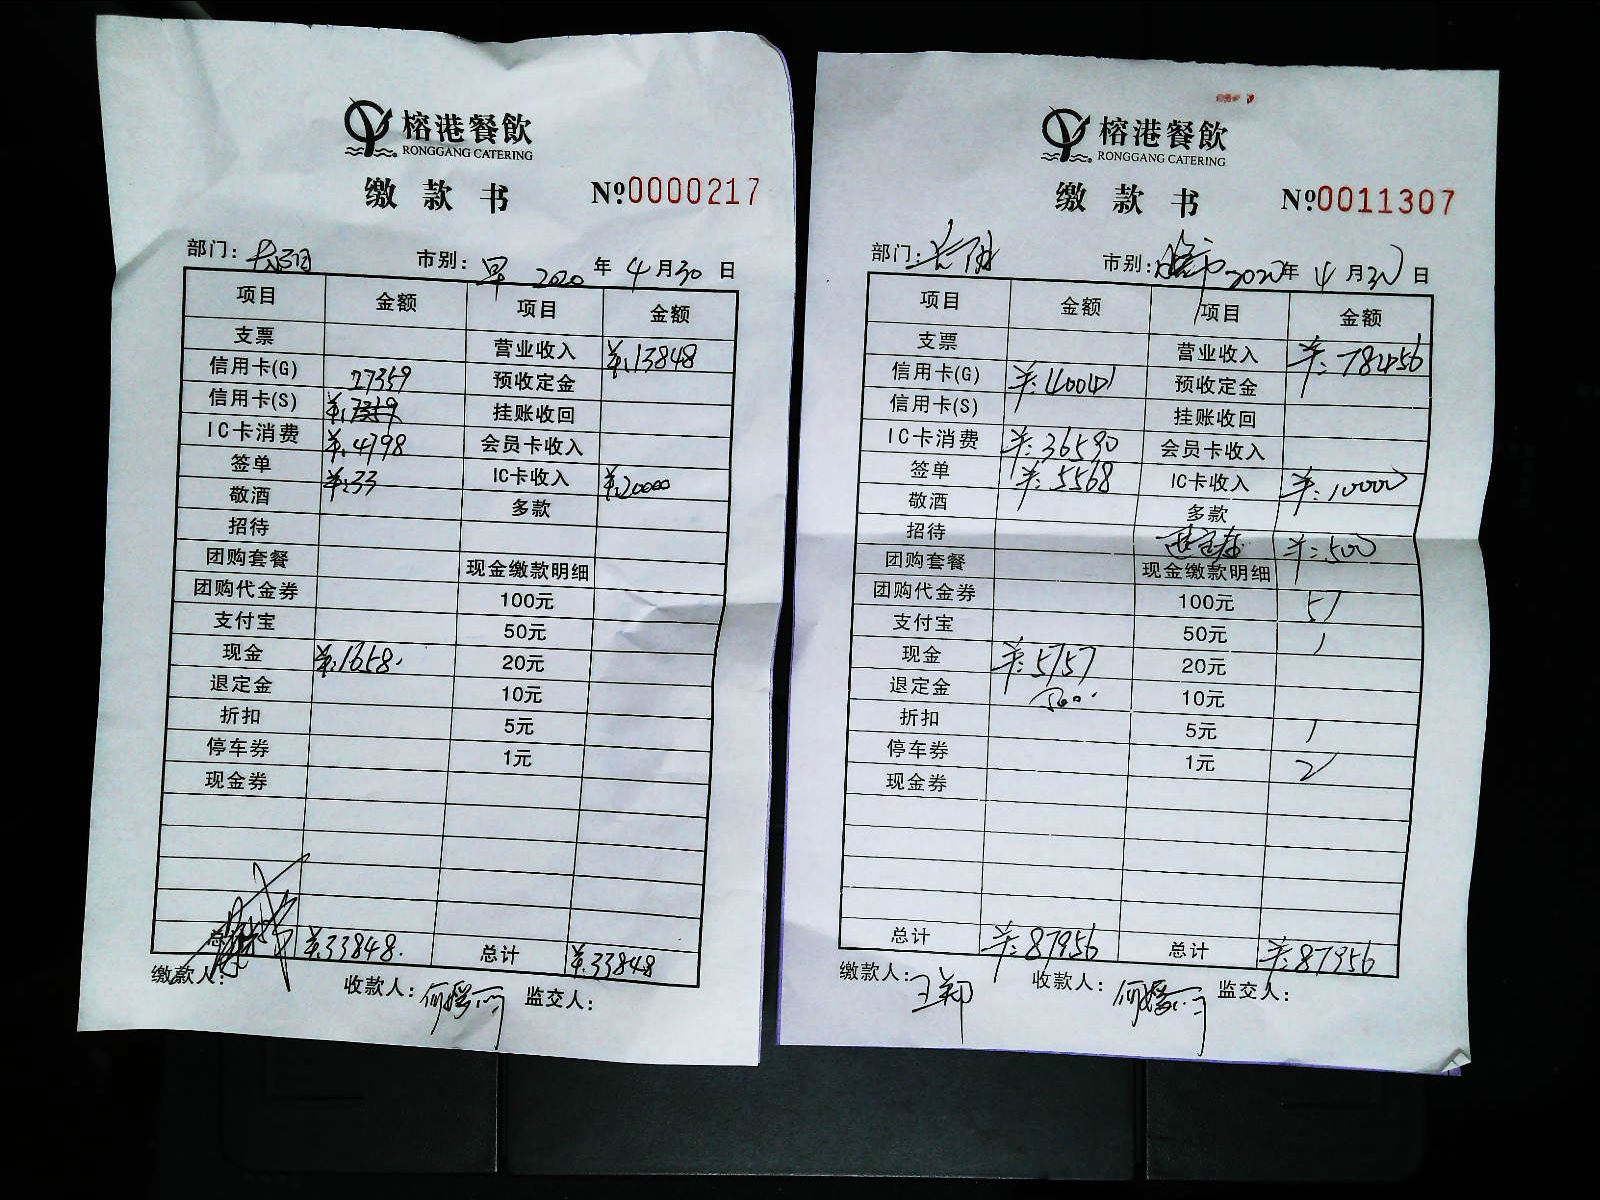 榕港餐飲
RONGGANG CATERING
缴款书 №0000217
部门： 市别：早 2020年4月30日
项目 金额 项目 金额
支票 营业收入 ¥:13848
信用卡(G) 27359 预收定金
信用卡(S) 挂账收回
IC卡消费 ¥:4798 会员卡收入
签单 ¥:33 IC卡收入 ¥:20000
敬酒 多款
招待
团购套餐 现金缴款明细
团购代金券 100元
支付宝 50元
现金 ¥:1658. 20元
退定金 10元
折扣 5元
停车券 1元
现金券
总计 ¥:33848. 总计 ¥:33848
缴款人： 收款人： 监交人：
榕港餐飲
RONGGANG CATERING
缴款书 №0011307
部门： 市别：晚市 2020年4月30日
项目 金额 项目 金额
支票 营业收入 ¥:78456
信用卡(G) ¥:40041 预收定金
信用卡(S) 挂账收回
IC卡消费 ¥:36590 会员卡收入
签单 ¥:5568 IC卡收入 ¥:10000
敬酒 多款
招待 ¥:500
团购套餐 现金缴款明细
团购代金券 100元 51
支付宝 50元 1
现金 ¥:5157 20元
退定金 500. 10元
折扣 5元 1
停车券 1元 2
现金券
总计 ¥:87956 总计 ¥:87956
缴款人： 收款人： 监交人：